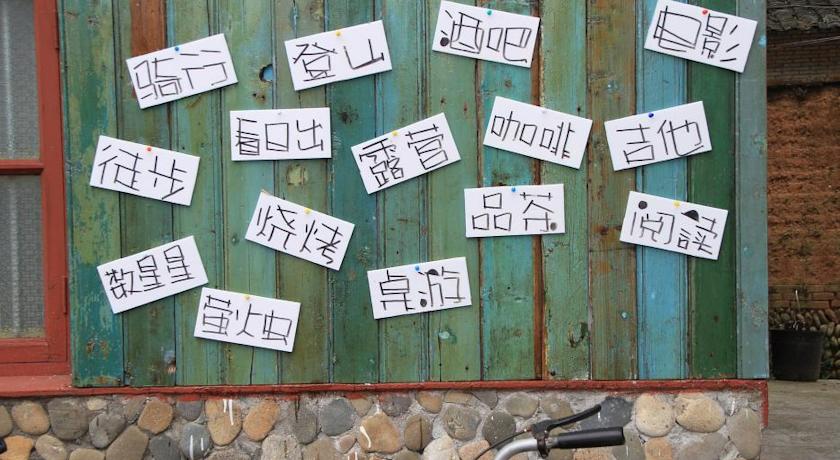 骑行
登山
酒吧
电影
徒步
看日出
露营
咖啡
吉他
烧烤
品茶
阅读
数星星
萤火虫
桌游